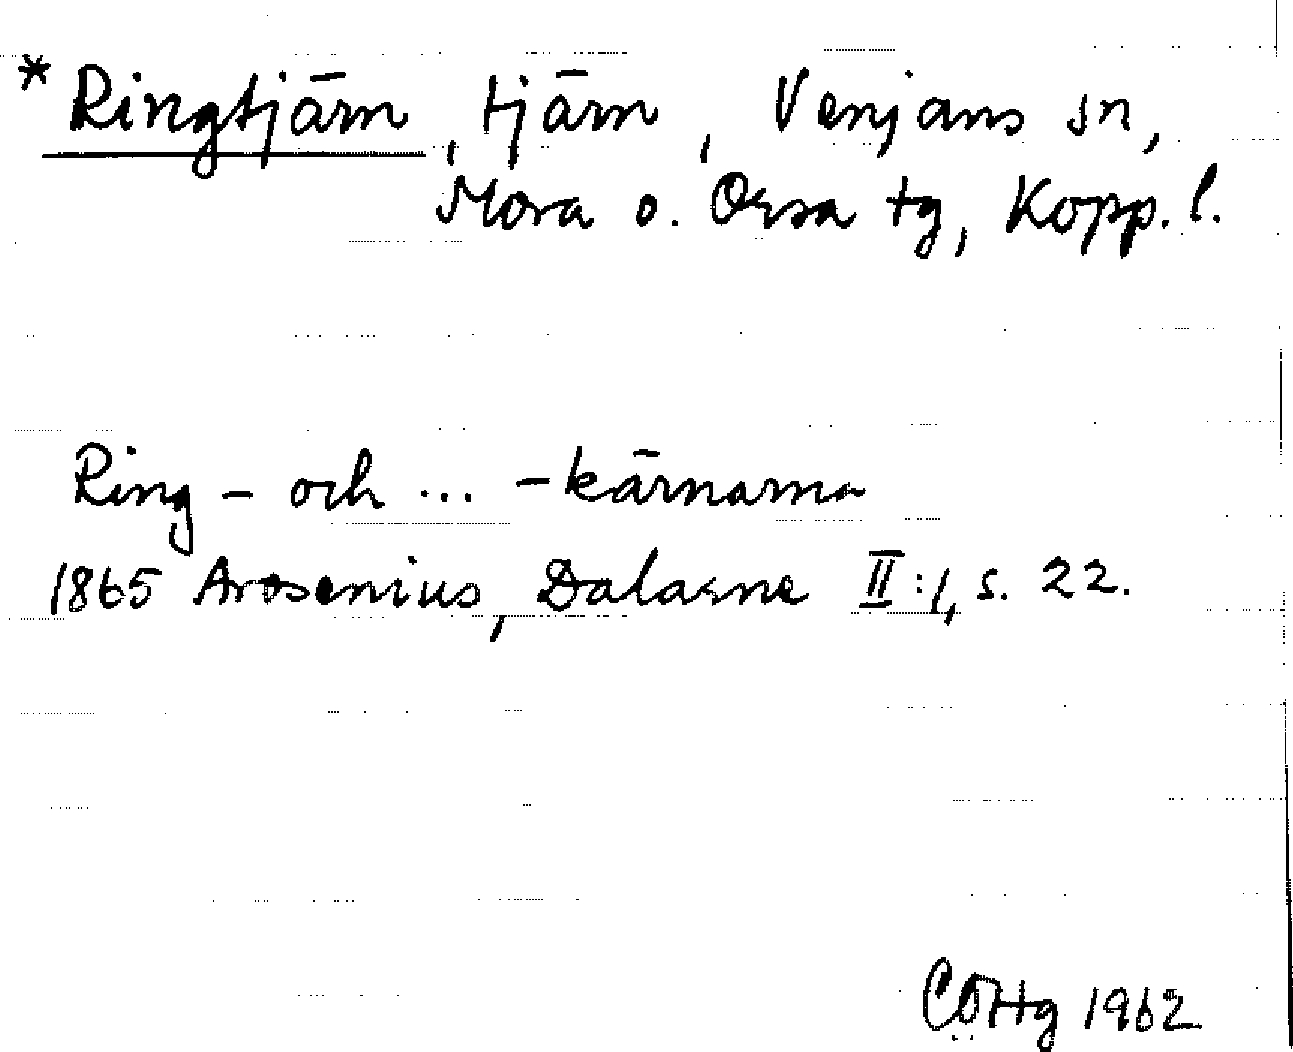 *Ringtjärn, tjärn, Venjans sn,
Mora o. Orsa tg, Kopp. l.
Ring- och ... -kärnarna
1865 Arosenius, Dalarne II:1, s. 22.
CÖHg 1962